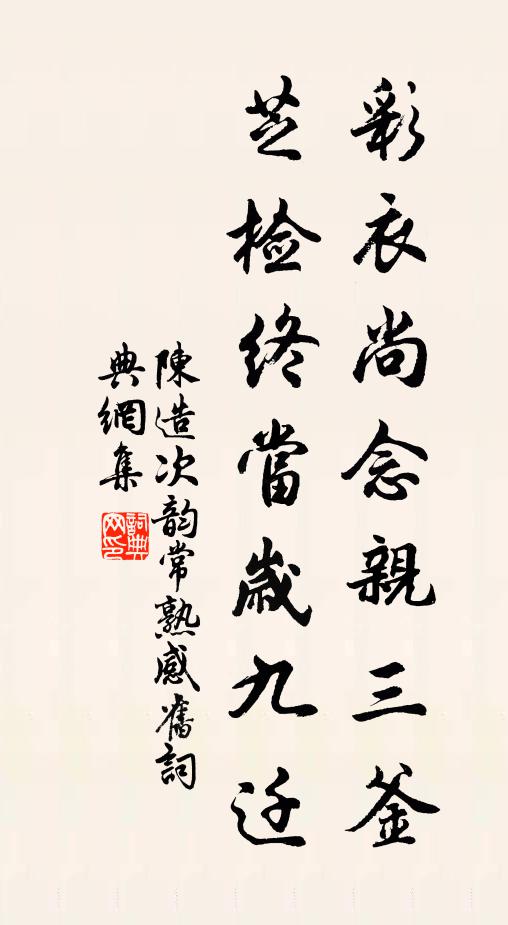 彩衣尚念親三釜
芝检终當歲九迁
陳造次韵常熟感舊詞
典網集
詞典
网印